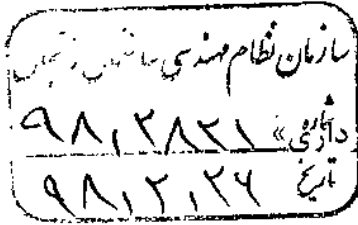 سازمان نظام مهندسی ساختمان زنجان
شماره ۹۸,۲۸۲۱
تاریخ ۹۸,۲,۲۶